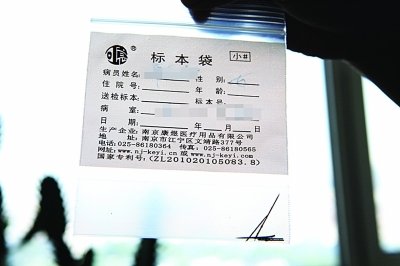 标本袋 小#
病员姓名: 性别:
住院号: 年龄:
送检标本: 标本号:
病室:
日期: 年 月 日
生产企业: 南京康煜医疗用品有限公司
地址: 南京市江宁区文靖路377号
电话: 025-86180364 传真: 025-86180565
网址: www.nj-keyi.cn 或 www.nj-keyi.com
国家专利号: (ZL201020105083.8)